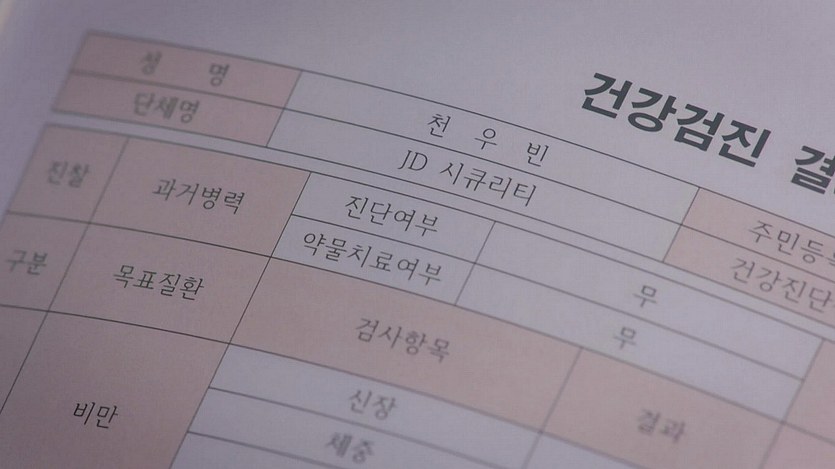 건강검진 결
성 명 천 우 빈
단체명 JD 시큐리티
주민등록
건강진단
진찰 과거병력 진단여부 무
약물치료여부 무
구분 목표질환 검사항목 결과
비만 신장
체중